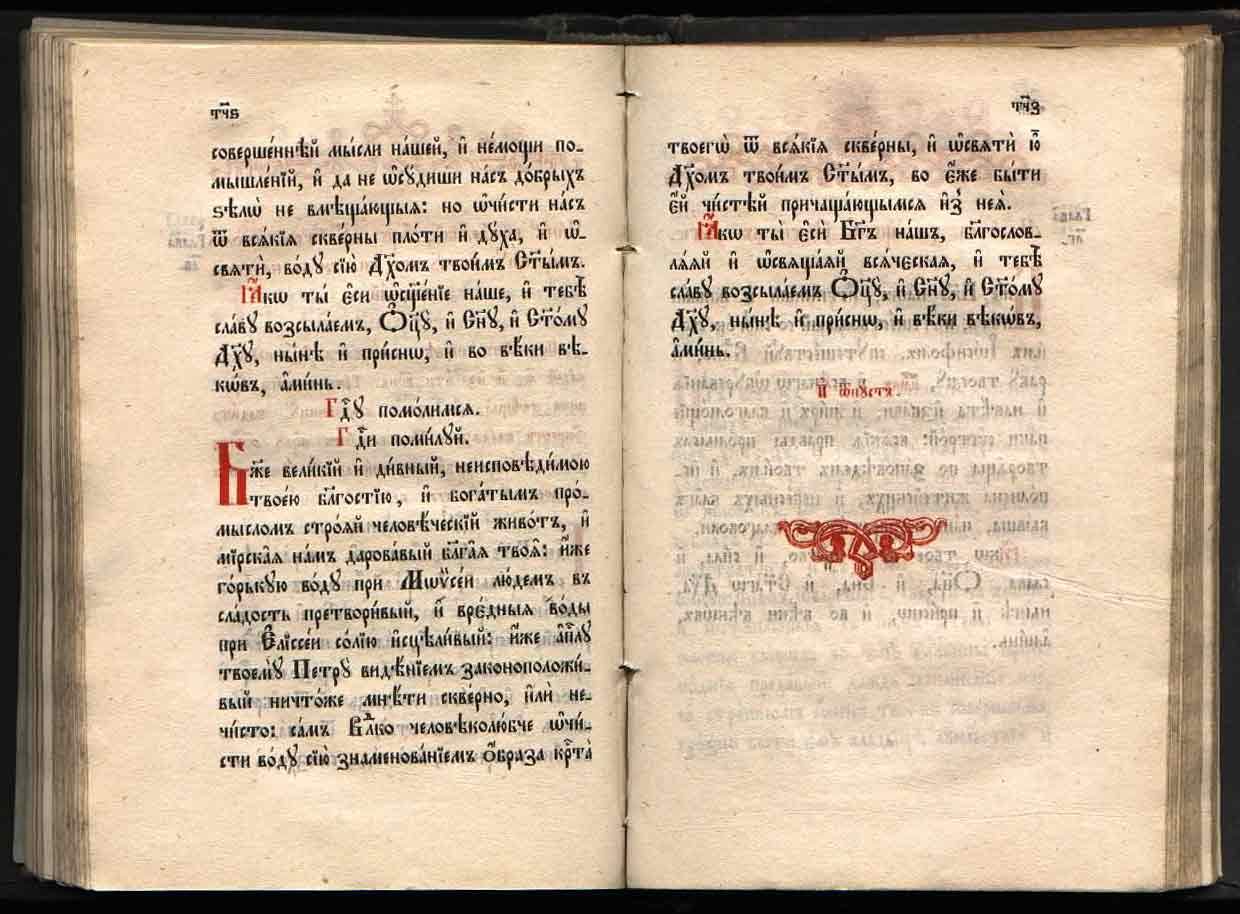 тч҃ѕ
соверше́ннѣй мы́сли на́шей, и҆ не́мощи по-
мышле́нїй, и҆ да не ѡ҆сꙋ́диши на́съ до́брыхъ
ѕѣлѡ̀ не вмѣща́ющыѧ: но ѡ҆чи́сти на́съ
ѿ всѧ́кїѧ скве́рны пло́ти и҆ дꙋ́ха, и҆ ѡ҆-
свѧтѝ, во́дꙋ сїю̀ Дх҃омъ твои́мъ Ст҃ы́мъ.
Ꙗ҆́кѡ ты̀ є҆сѝ ѡ҆сщ҃е́нїе на́ше, и҆ тебѣ̀
сла́вꙋ возсыла́емъ, Ѻ҆ц҃ꙋ̀, и҆ Сн҃ꙋ, и҆ Ст҃о́мꙋ
Дх҃ꙋ, ны́нѣ и҆ при́снѡ, и҆ во вѣ́ки вѣ-
кѡ́въ, а҆ми́нь.
Гдⷭ҇ꙋ помо́лимсѧ.
Гдⷭ҇и поми́лꙋй.
Бж҃е вели́кїй и҆ ди́вный, неисповѣди́мою
твое́ю бл҃гостїю, и҆ бога́тымъ про́-
мысломъ стро́ѧй человѣ́ческїй живо́тъ, и҆
мїрска́ѧ на́мъ дарова́вый бл҃га́ѧ твоѧ̑: и҆́же
го́рькꙋю во́дꙋ при Мѡѷсе́и лю́демъ въ
сла́дость претвори́вый, и҆ вре́дныѧ во́ды
при Є҆лїссе́и со́лїю и҆сцѣли́вый: и҆́же а҆пⷭ҇лꙋ
твоемꙋ̀ Петрꙋ̀ видѣ́нїемъ законоположи́-
вый ничто́же мнѣ́ти скве́рно, и҆лѝ не-
чи́сто: са́мъ Влⷣко человѣколю́бче ѡ҆чи́-
сти во́дꙋ сїю̀ зна́менованїемъ ѻ҆́браза крⷭ҇та̀
тч҃з
твоегѡ̀ ѿ всѧ́кїѧ скве́рны, и҆ ѡ҆свѧтѝ ю҆̀
Дх҃омъ твои́мъ Ст҃ы́мъ, во є҆́же бы́ти
є҆́й чи́стѣй причаща́ющымсѧ и҆з̾ неѧ̀.
Ꙗ҆́кѡ ты̀ є҆сѝ Бг҃ъ на́шъ, бл҃гослов-
лѧ́ѧй и҆ ѡ҆свѧща́ѧй всѧ́ческаѧ, и҆ тебѣ̀
сла́вꙋ возсыла́емъ Ѻ҆ц҃ꙋ̀, и҆ Сн҃ꙋ, и҆ Ст҃о́мꙋ
Дх҃ꙋ, ны́нѣ и҆ при́снѡ, и҆ вѣ́ки вѣкѡ́въ,
а҆ми́нь.
И҆ ѿпꙋ́стъ.